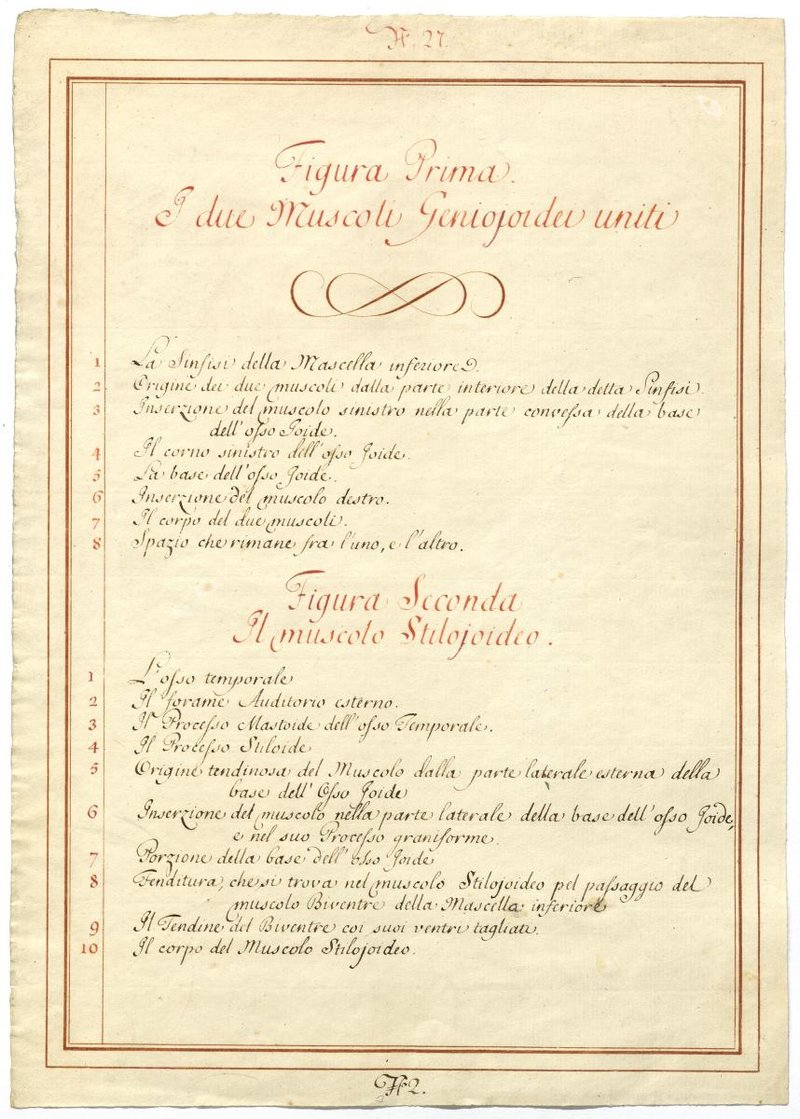 N. 27.
Figura Prima.
I due Muscoli Geniojoidei uniti
1 La Sinfisi della Mascella inferiore.
2 Origine dei due muscoli dalla parte interiore della detta Sinfisi.
3 Inserzione del muscolo sinistro nella parte convessa della base
dell'osso Joide.
4 Il corno sinistro dell'osso Joide.
5 La base dell'osso Joide.
6 Inserzione del muscolo destro.
7 Il corpo del due muscoli.
8 Spazio che rimane fra l'uno, e l'altro.
Figura Seconda
Il muscolo Stilojoideo.
1 L'osso temporale
2 Il forame Auditorio esterno.
3 Il Processo Mastoide dell'osso Temporale.
4 Il Processo Stiloide
5 Origine tendinosa del Muscolo dalla parte laterale esterna della
base dell'Osso Joide
6 Inserzione del muscolo nella parte laterale della base dell'osso Joide,
e nel suo Processo graniforme.
7 Porzione della base dell'Osso Joide
8 Fenditura, che si trova nel muscolo Stilojoideo pel passaggio del
muscolo Biventre della Mascella inferiore
9 Il Tendine del Biventre coi suoi ventri tagliati.
10 Il corpo del Muscolo Stilojoideo.